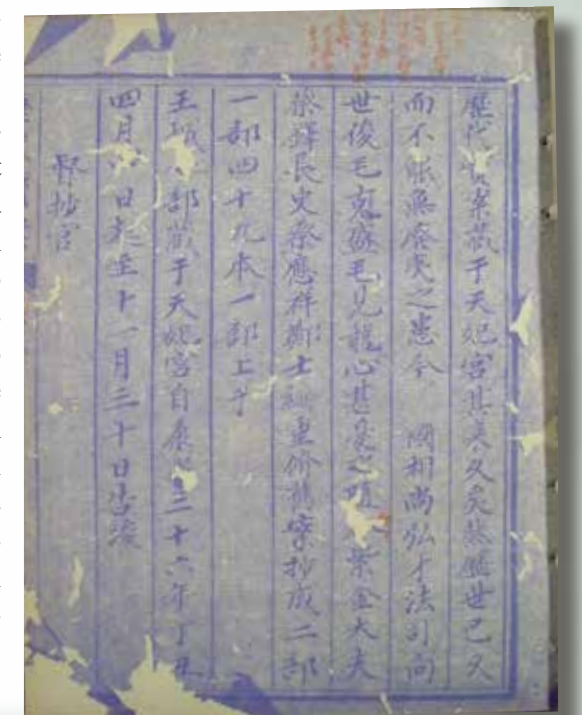 歷代寶案藏于天妃宮其來久矣然歷世已久
而不能無廢失之患今 國相尚弘才法司向
世俊毛克盛毛見龍心甚憂之 紫金大夫
蔡鐸長史蔡應祥鄭士綸重修舊案抄成二部
一部四十九本一部上于
王城一部藏于天妃宮自康熙三十六年丁丑
四月 日起至十一月三十日告竣
督抄官